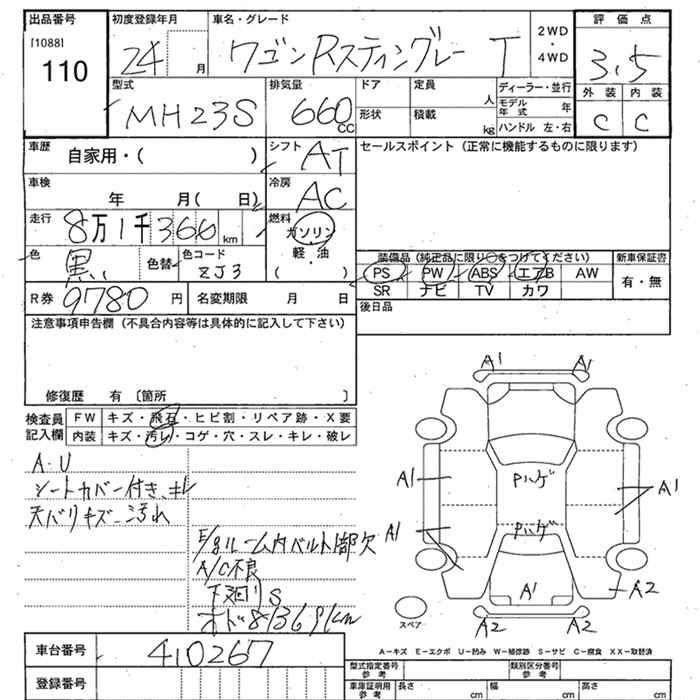 出品番号
[1088]
110
初度登録年月
24 月
車名・グレード
ワゴンRスティングレー T
2WD
・
4WD
評価点
3.5
外装 内装
C C
型式
MH23S
排気量
660
CC
ドア
形状
定員
人
積載
kg
ディーラー・並行
モデル年式 年
ハンドル 左・右
車歴
自家用・( )
シフト AT
セールスポイント(正常に機能するものに限ります)
車検
年 月( 日)
冷房 AC
走行
8万1千366km
燃料
ガソリン
・
軽・油
( )
色 黒
色替
色コード
ZJ3
装備品(純正品に限り○をつけてください)
PS PW ABS エアB AW
SR ナビ TV カワ
新車保証書
有・無
R券 9780 円
名変期限 月 日
後日品
注意事項申告欄(不具合内容等は具体的に記入して下さい)
修復歴 有 〔箇所 〕
検査員記入欄
FW キズ・飛石・ヒビ割・リペア跡・X要
内装 キズ・汚レ・コゲ・穴・スレ・キレ・破レ
A・U
シートカバー付き、キレ
天バリキズ、汚れ
E/gルーム内ベルト1部欠
A/C不良
下廻りS
オド81369km
A1 A1
A1 Pハゲ A1
A1 Pハゲ
A1 A2
スペア A2 A2
A－キズ E－エクボ U－凹み W－補修跡 S－サビ C－腐食 XX－取替済
車台番号 410267
登録番号
型式指定番号
参考
類別区分番号
参考
車庫証明用
参考
長さ cm 幅 cm 高さ cm